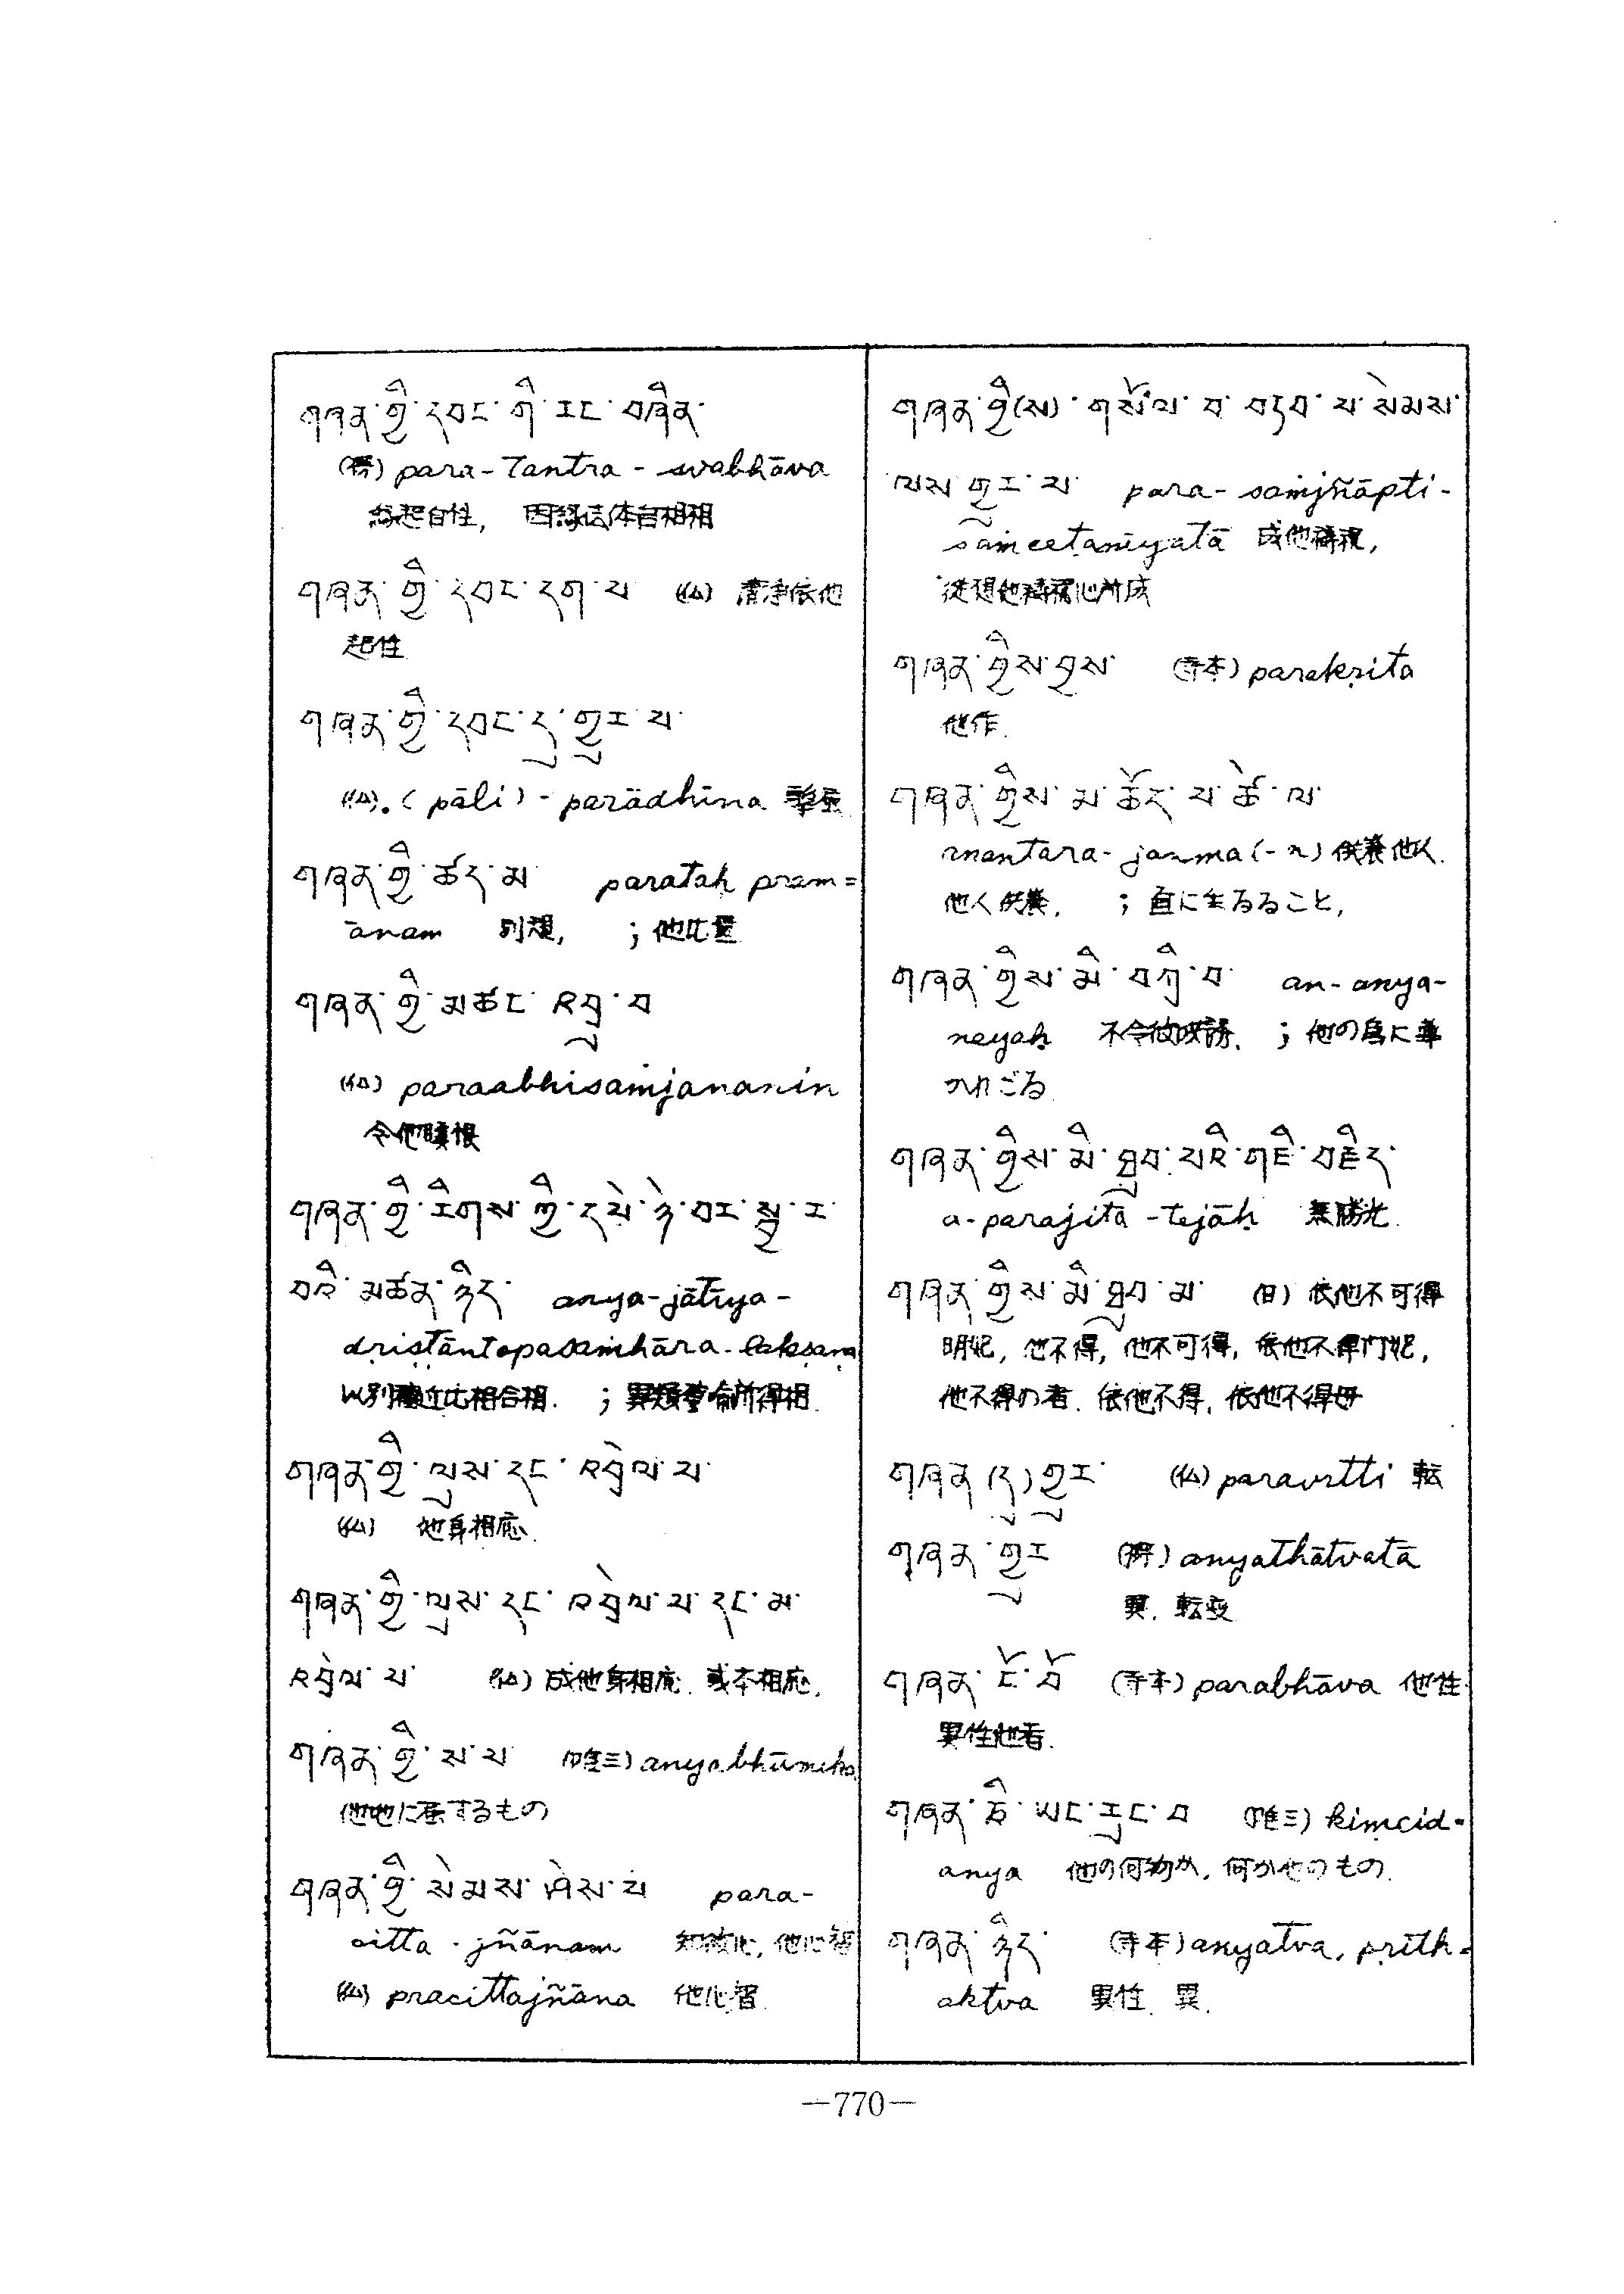 གཞན་གྱི་དབང་གི་རང་བཞིན་
para-tantra-svabhāva
縁起自性, 因縁法体自相相
གཞན་གྱི་དབང་དག་པ (仏) 清浄依他
起性
གཞན་གྱི་དབང་དུ་གྱུར་པ་
(仏). (pāli)-parādhīna
གཞན་གྱི་ཚད་མ paratah pram=
ānam 別理, ; 他比量
གཞན་གྱི་མཚང་འབྲུ་བ
(仏) paraabhisaṁjananin
令他瞋恨
གཞན་གྱི་རིགས་ཀྱི་དཔེ་ཉེ་བར་སྦྱར་
བའི་མཚན་ཉིད་ anya-jātīya-
dṛiṣṭāntopasaṁhāra-lakṣaṇa
以別 比相合相. ; 異類譬喩所得相.
གཞན་གྱི་ལུས་དང་འབྲེལ་པ་
(仏) 他身相応.
གཞན་གྱི་ལུས་དང་འབྲེལ་པ་དང་མ་
འབྲེལ་པ་ (仏) 成他身相応. 或不相応.
གཞན་གྱི་ས་པ (唯三) anyabhūmika
他地に属するもの
གཞན་གྱི་སེམས་ཤེས་པ para-
citta-jñānam 知彼心, 他心智
(仏) pracittajñāna 他心智.
གཞན་གྱི(ས)་གསོལ་བ་བཏབ་པ་སེམས་
ལས་གྱུར་པ་ para-saṁjñāpti-
sāṁcetanīyatā 成他禱祝,
従想他 心所成
གཞན་གྱིས་བྱས་ (寺本) parakṛita
他作.
གཞན་གྱིས་མ་ཚོད་པ་ཚེ་ལ་
anantara-janma(-n) 供養他人.
他人供養. ; 直に生るること,
གཞན་གྱིས་མི་བཀྲི་བ་ an-anya-
neyaḥ 不令彼 誘. ; 他の為に導
かれざる
གཞན་གྱིས་མི་ཐུབ་པའི་གཟི་བརྗིད་
a-parajitā-tejāḥ 無勝光.
གཞན་གྱིས་མི་ཐུབ་མ་ 依他不可得
明妃, 他不得, 他不可得, 依他不得門妃,
他不得の者. 依他不得, 依他不得母
གཞན་(དུ)གྱུར་ (仏) paravṛtti 転
གཞན་གྱུར anyathātvatā
異. 転変
གཞན་ངོ་བོ (寺本) parabhāva 他性.
異性他者.
གཞན་ཅི་ཡང་རུང་བ (唯三) kiṃcid=
anya 他の何物か, 何か他のもの.
གཞན་ཉིད་ (寺本) anyatva, pṛith=
aktva 異性. 異.
—770—